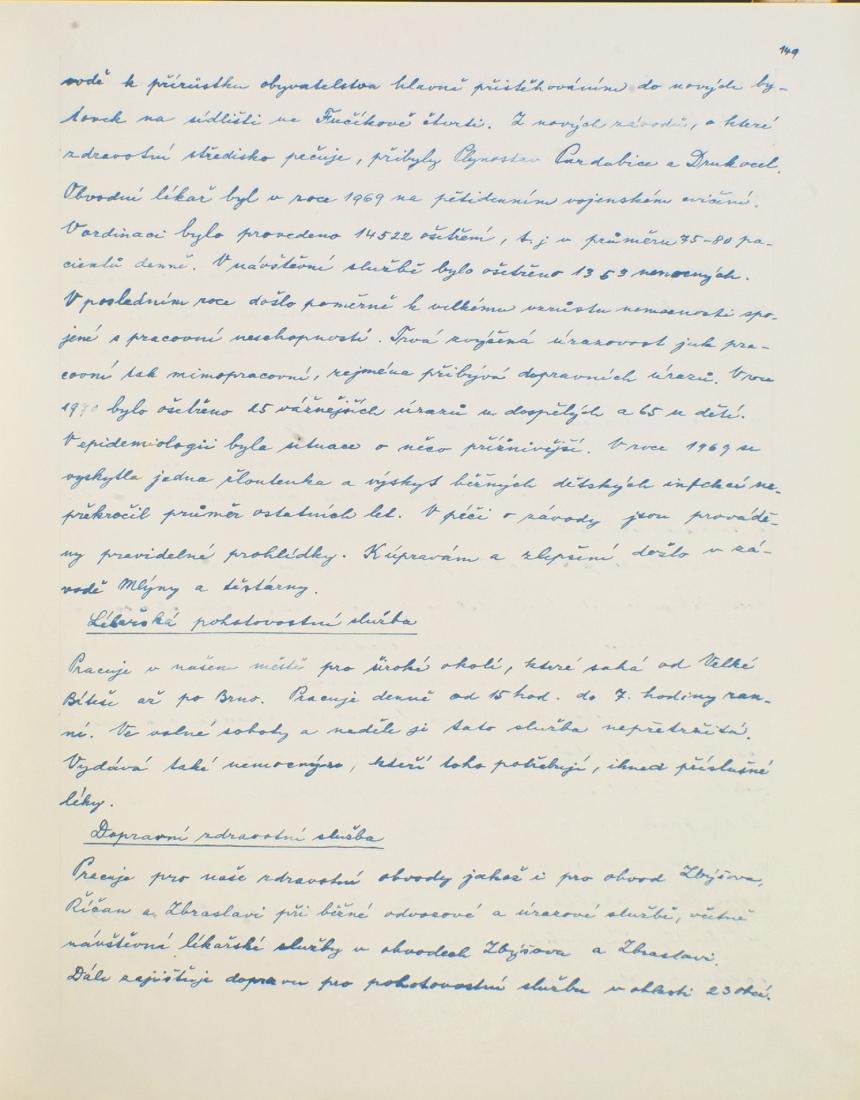 149
vodě k přírůstku obyvatelstva hlavně přistěhováním do nových by-
tovek na sídlišti ve Fučíkově čtvrti. Z nových závodů, o které
zdravotní středisko pečuje, přibyly Plynostav Pardubice a Drukocel.
Obvodní lékař byl v roce 1969 na pětidenním vojenském cvičení.
V ordinaci bylo provedeno 14522 ošetření, t.j v průměru 75-80 pa-
cientů denně. V návštěvní službě bylo ošetřeno 1353 nemocných.
V posledním roce došlo poměrně k velkému vzrůstu nemocnosti spo-
jené s pracovní neschopností. Trvá zvýšená úrazovost jak pra-
covní tak mimopracovní, zejména přibývá dopravních úrazů. V roce
1970 bylo ošetřeno 25 vážnějších úrazů u dospělých a 65 u dětí.
V epidemiologii byla situace o něco příznivější. V roce 1969 se
vyskytla jedna žloutenka a výskyt běžných dětských infekcí ne-
překročil průměr ostatních let. V péči o závody jsou provádě-
ny pravidelné prohlídky. K úpravám a zlepšení došlo v zá-
vodě Mlýny a těstárny.
Lékařská pohotovostní služba
Pracuje v našem městě pro široké okolí, které sahá od Velké
Bíteše až po Brno. Pracuje denně od 15 hod. do 7. hodiny ran-
ní. Ve volné soboty a neděle je tato služba nepřetržitá.
Vydává také nemocným, kteří toho potřebují, ihned příslušné
léky.
Dopravní zdravotní služba
Pracuje pro naše zdravotní obvody jakož i pro obvod Zbýšova,
Říčan a Zbraslavi při běžné odvozové a úrazové službě, včetně
návštěvní lékařské služby v obvodech Zbýšova a Zbraslavi.
Dále zajišťuje dopravu pro pohotovostní službu v oblasti 23 obcí.